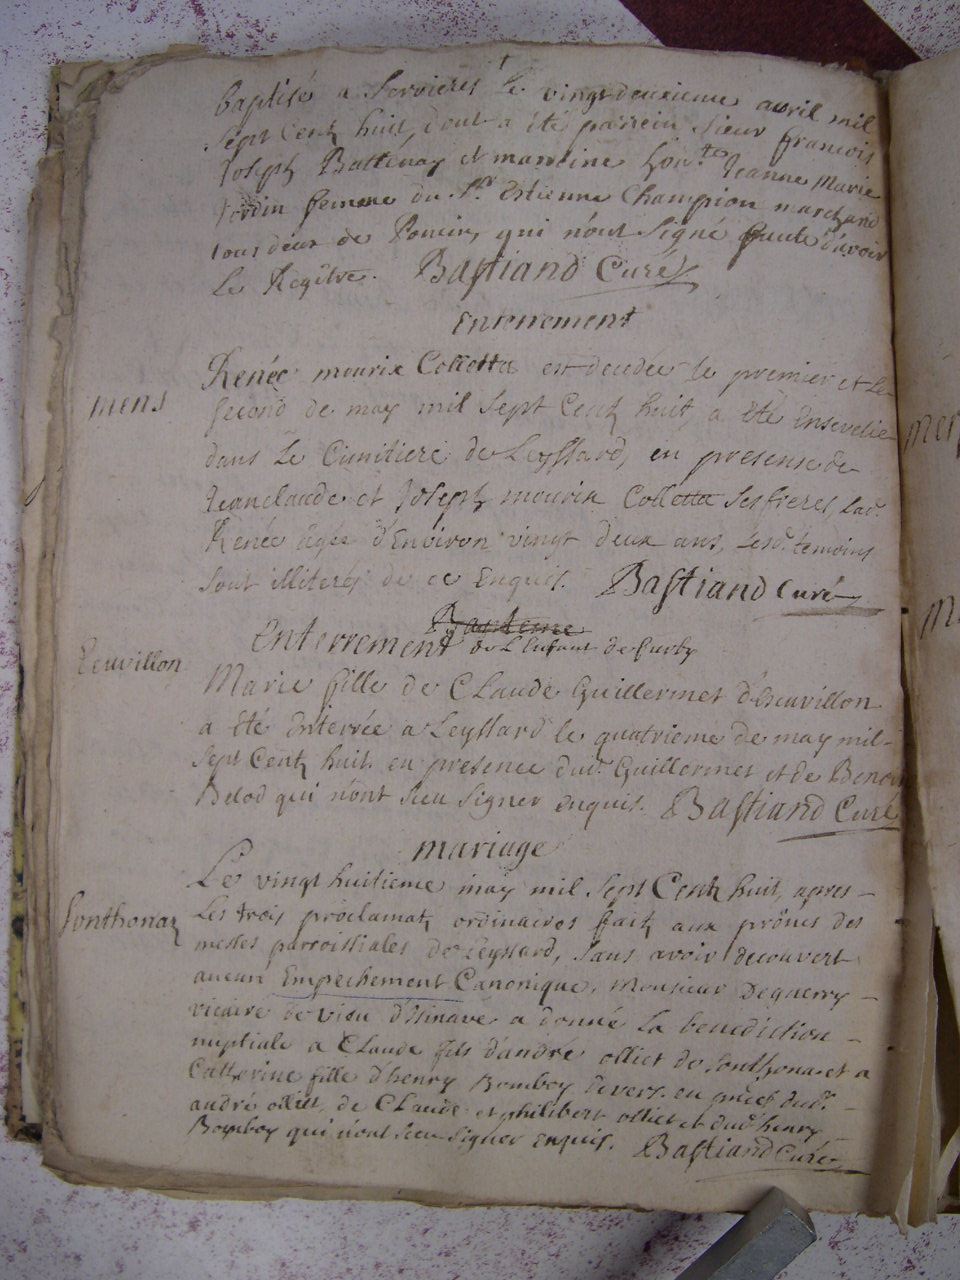 baptisé a Serrieres Le vingt deuxieme avril mil
Sept Centz huit, dont a été parrein Sieur francois
Joseph Battenay et marreine hon.te Jeanne Marie
Jordin femme du Sr. Estienne Champion marchand
tous deux de Poncin, qui n'ont Signé faute d'avoir
Le Regître. Bastiand Curé
Enterrement
mens
Renée mourix Colletta est decedée le premier et Le
second de may mil Sept Centz huit, a été Ensevelie
dans Le Cimitiere de Leyssard, en presense de
Jeanclaude et Joseph mourix Colletta Ses freres, Lad.
Renée agée d'Environ vingt deux ans, Lesd. temoins
sont illiterés de ce Enquis. Bastiand Curé
Bapteme
Enterrement de L'Enfant de
Escuvillon
Marie fille de CLaude Guillermet d'Escuvillon
a été Enterrée a Leyssard le quatrieme de may mil
Sept Centz huit en presence dud. Guillermet et de Benoit
Belod qui n'ont Sceu Signer enquis. Bastiand Curé
mariage
Sonthonaz
Le vingt huitieme may mil Sept Centz huit, apres
Les trois proclamatz ordinaires faitz aux prônes des
messes parroissiales de Leyssard, Sans avoir decouvert
aucun Empechement Canonique, Monsieur Deguerry
vicaire de vieu d'Isinave a donné La benediction
nuptiale a CLaude fils d'andré olliet de Sonthona et a
Catherine fille d'henry Bomboy en dud.
andré olliet, de CLaude et philibert olliet et dud. henry
Bomboy qui n'ont Sceu Signer enquis. Bastiand Curé